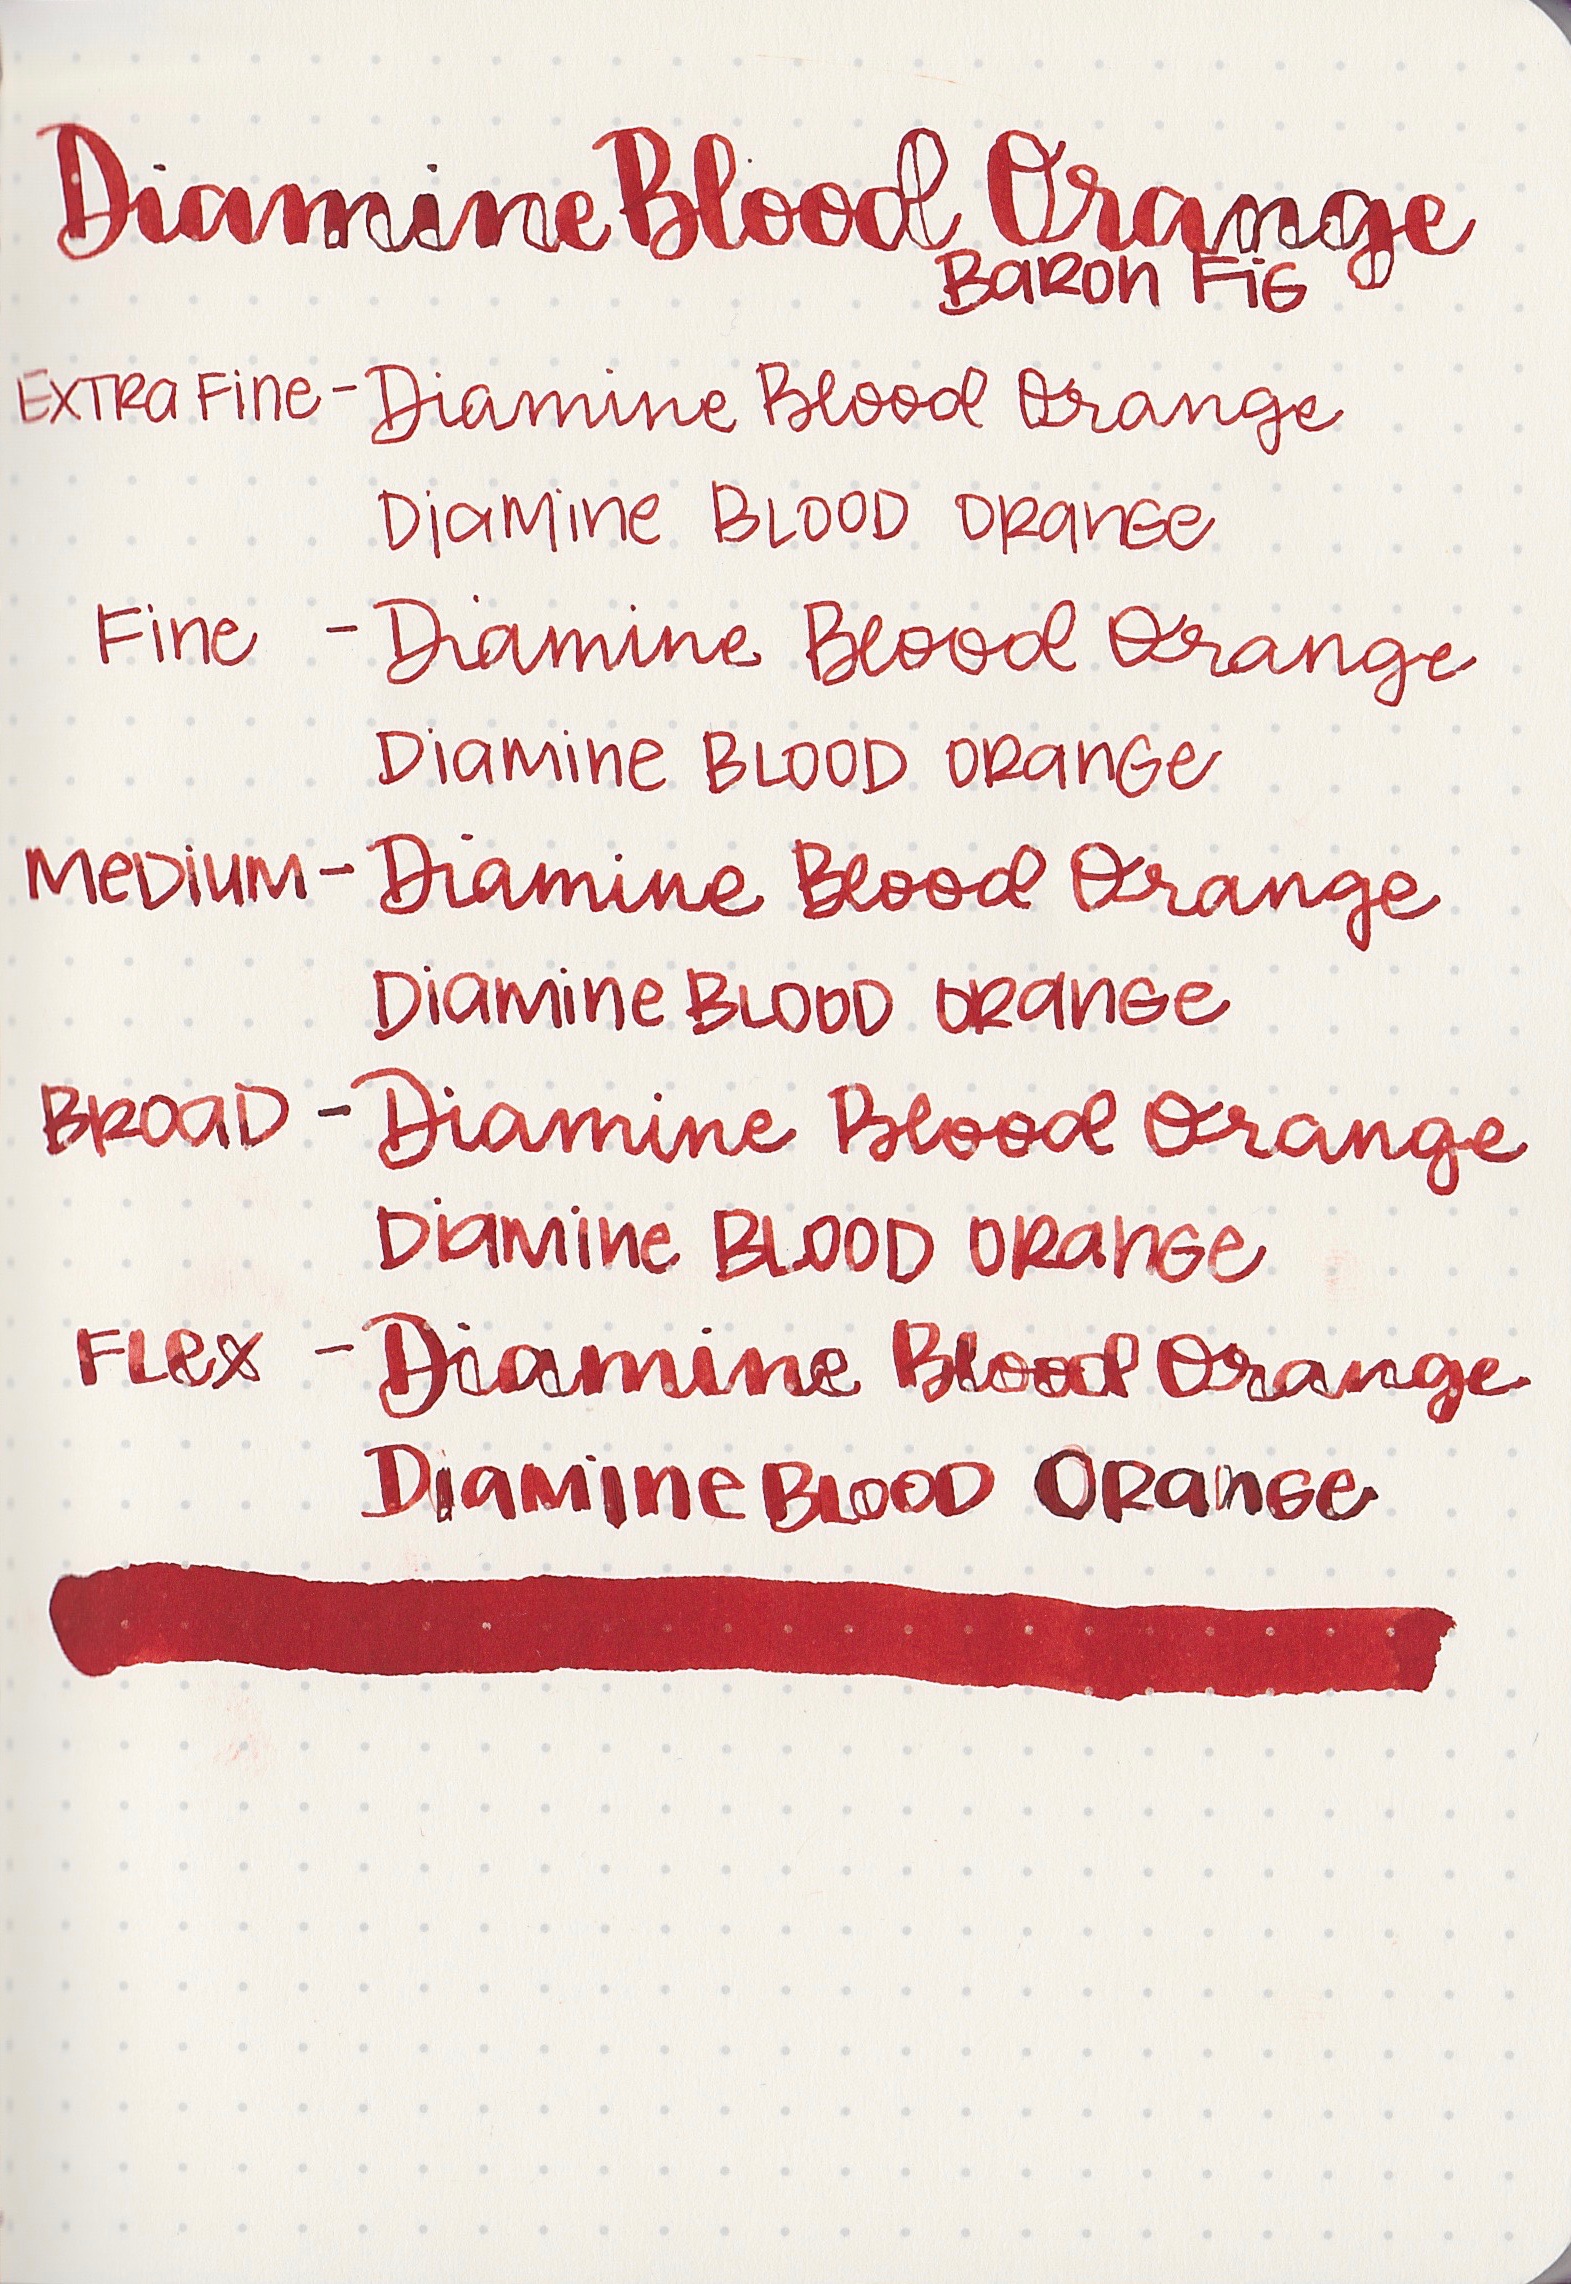 Diamine Blood Orange
Baron Fig
Extra Fine - Diamine Blood Orange
Diamine Blood Orange
Fine - Diamine Blood Orange
Diamine Blood Orange
Medium - Diamine Blood Orange
Diamine Blood Orange
Broad - Diamine Blood Orange
Diamine Blood Orange
Flex - Diamine Blood Orange
Diamine Blood Orange